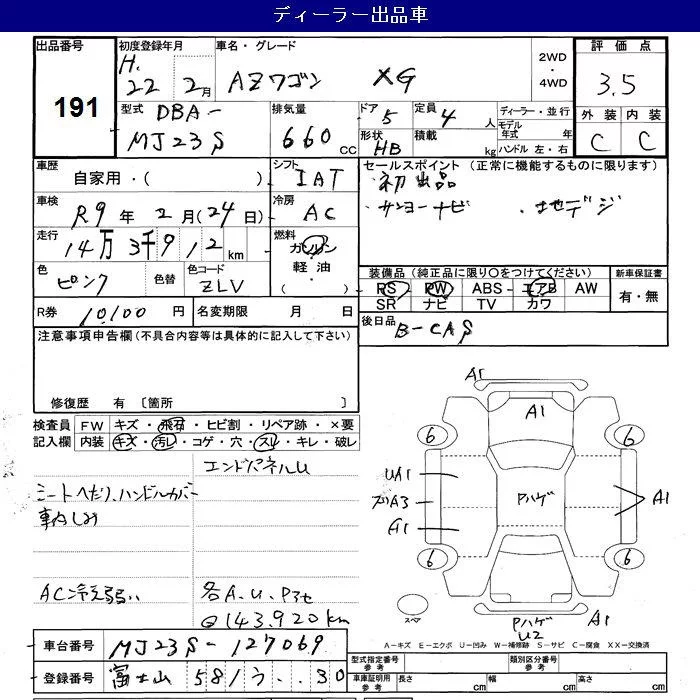 ディーラー出品車
出品番号
191
初度登録年月
H. 22年 2月
車名・グレード
AZワゴン XG
2WD
・
4WD
評価点
3.5
外装 内装
C C
型式
DBA-
MJ23S
排気量
660 CC
ドア 5
形状 HB
定員 4人
積載 kg
ディーラー・並行
モデル年式 年
ハンドル 左・右
車歴
自家用・( )
シフト
IAT
車検
R9年 2月(24日)
冷房
AC
走行
14万3千912km
燃料
ガソリン
・
軽油
・
( )
色
ピンク
色替
色コード
ZLV
R券 10,100円
名変期限 月 日
セールスポイント(正常に機能するものに限ります)
・初出品
・サンヨーナビ ・地デジ
装備品(純正品に限り○をつけてください)
PS・PW・ABS・エアB・AW
SR ナビ TV カワ
新車保証書
有・無
後日品
B-CAS
注意事項申告欄(不具合内容等は具体的に記入して下さい)
修復歴 有〔箇所 〕
検査員記入欄
FW キズ・飛石・ヒビ割・リペア跡・×要
内装 キズ・汚レ・コゲ・穴・スレ・キレ・破レ
エンドパネルU
シートへたり、ハンドルカバー
車内しみ
AC冷え弱い
各A.U.P3セ
◎143,920km
A1
A1
6 6
UA1
Pハゲ
A1
A1
6 6
スペア
Pハゲ
U2
A1
A-キズ E-エクボ U-凹み W-補修跡 S-サビ C-腐食 XX-交換済
車台番号
MJ23S-127069
登録番号
富士山 581 う ・・30
型式指定番号
参考
類別区分番号
参考
車庫証明用
参考
長さ cm
幅 cm
高さ cm